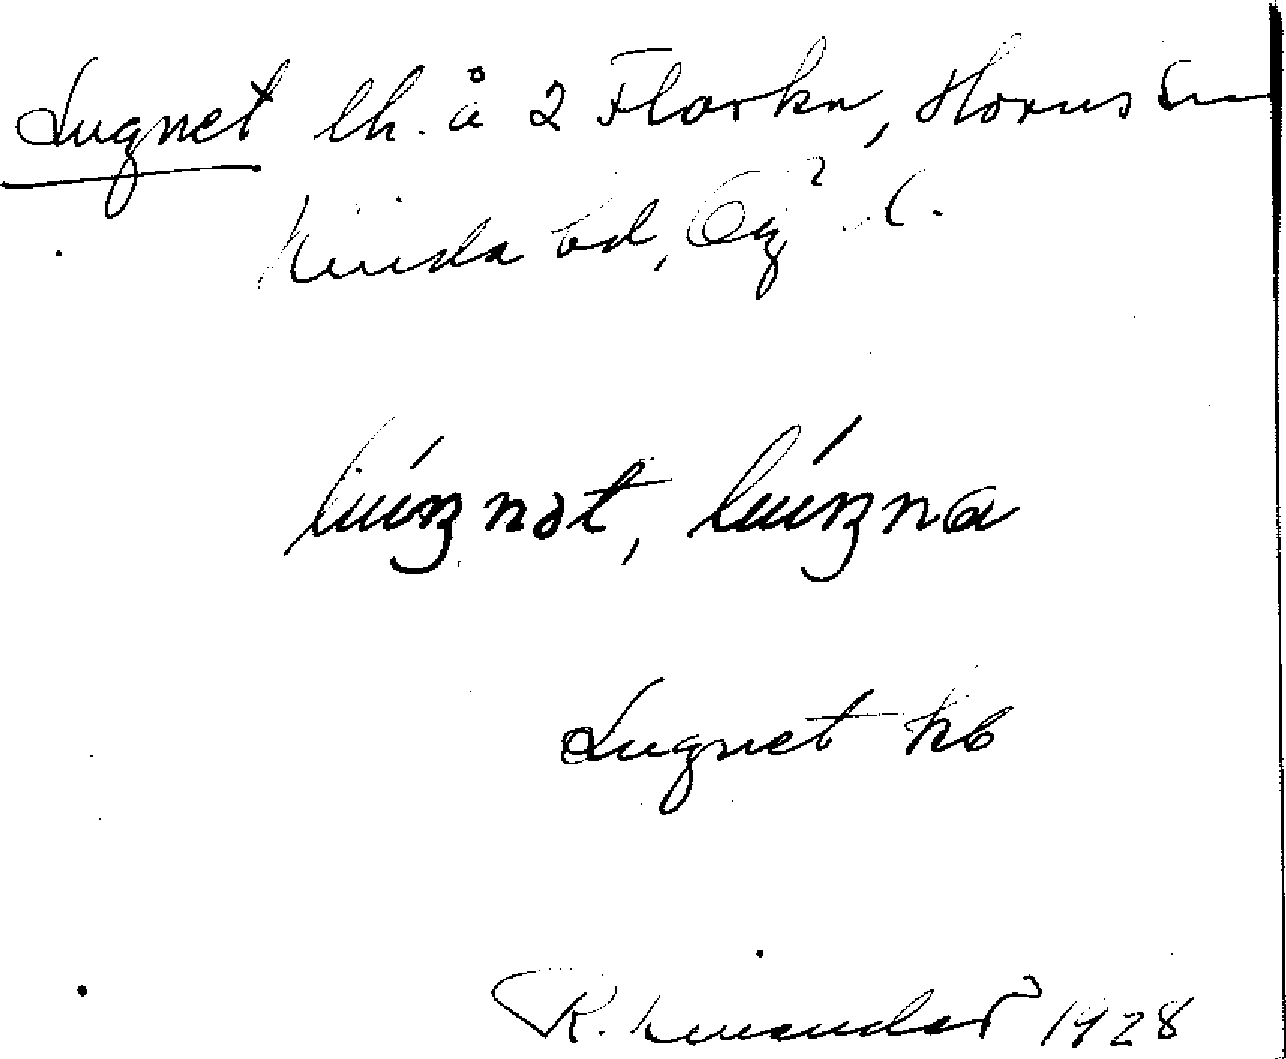 Lugnet lh. å 2 Flarka, Horns sn
Kinda hd, Ög. l.
lúŋnət, lúŋna
Lugnet kb
R. Linander 1928